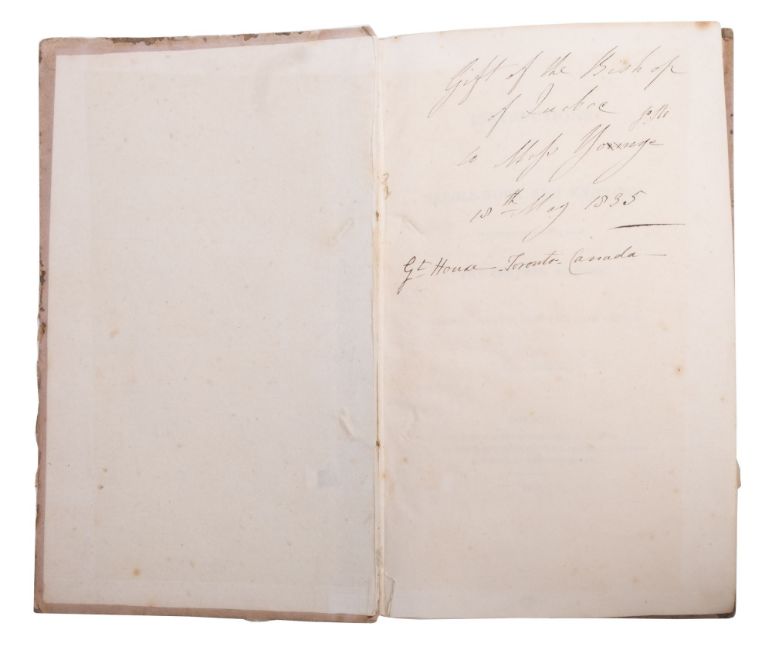 Gift of the Bishop
of Quebec
to Miss Yonge
18th May 1835
Gt House Toronto Canada